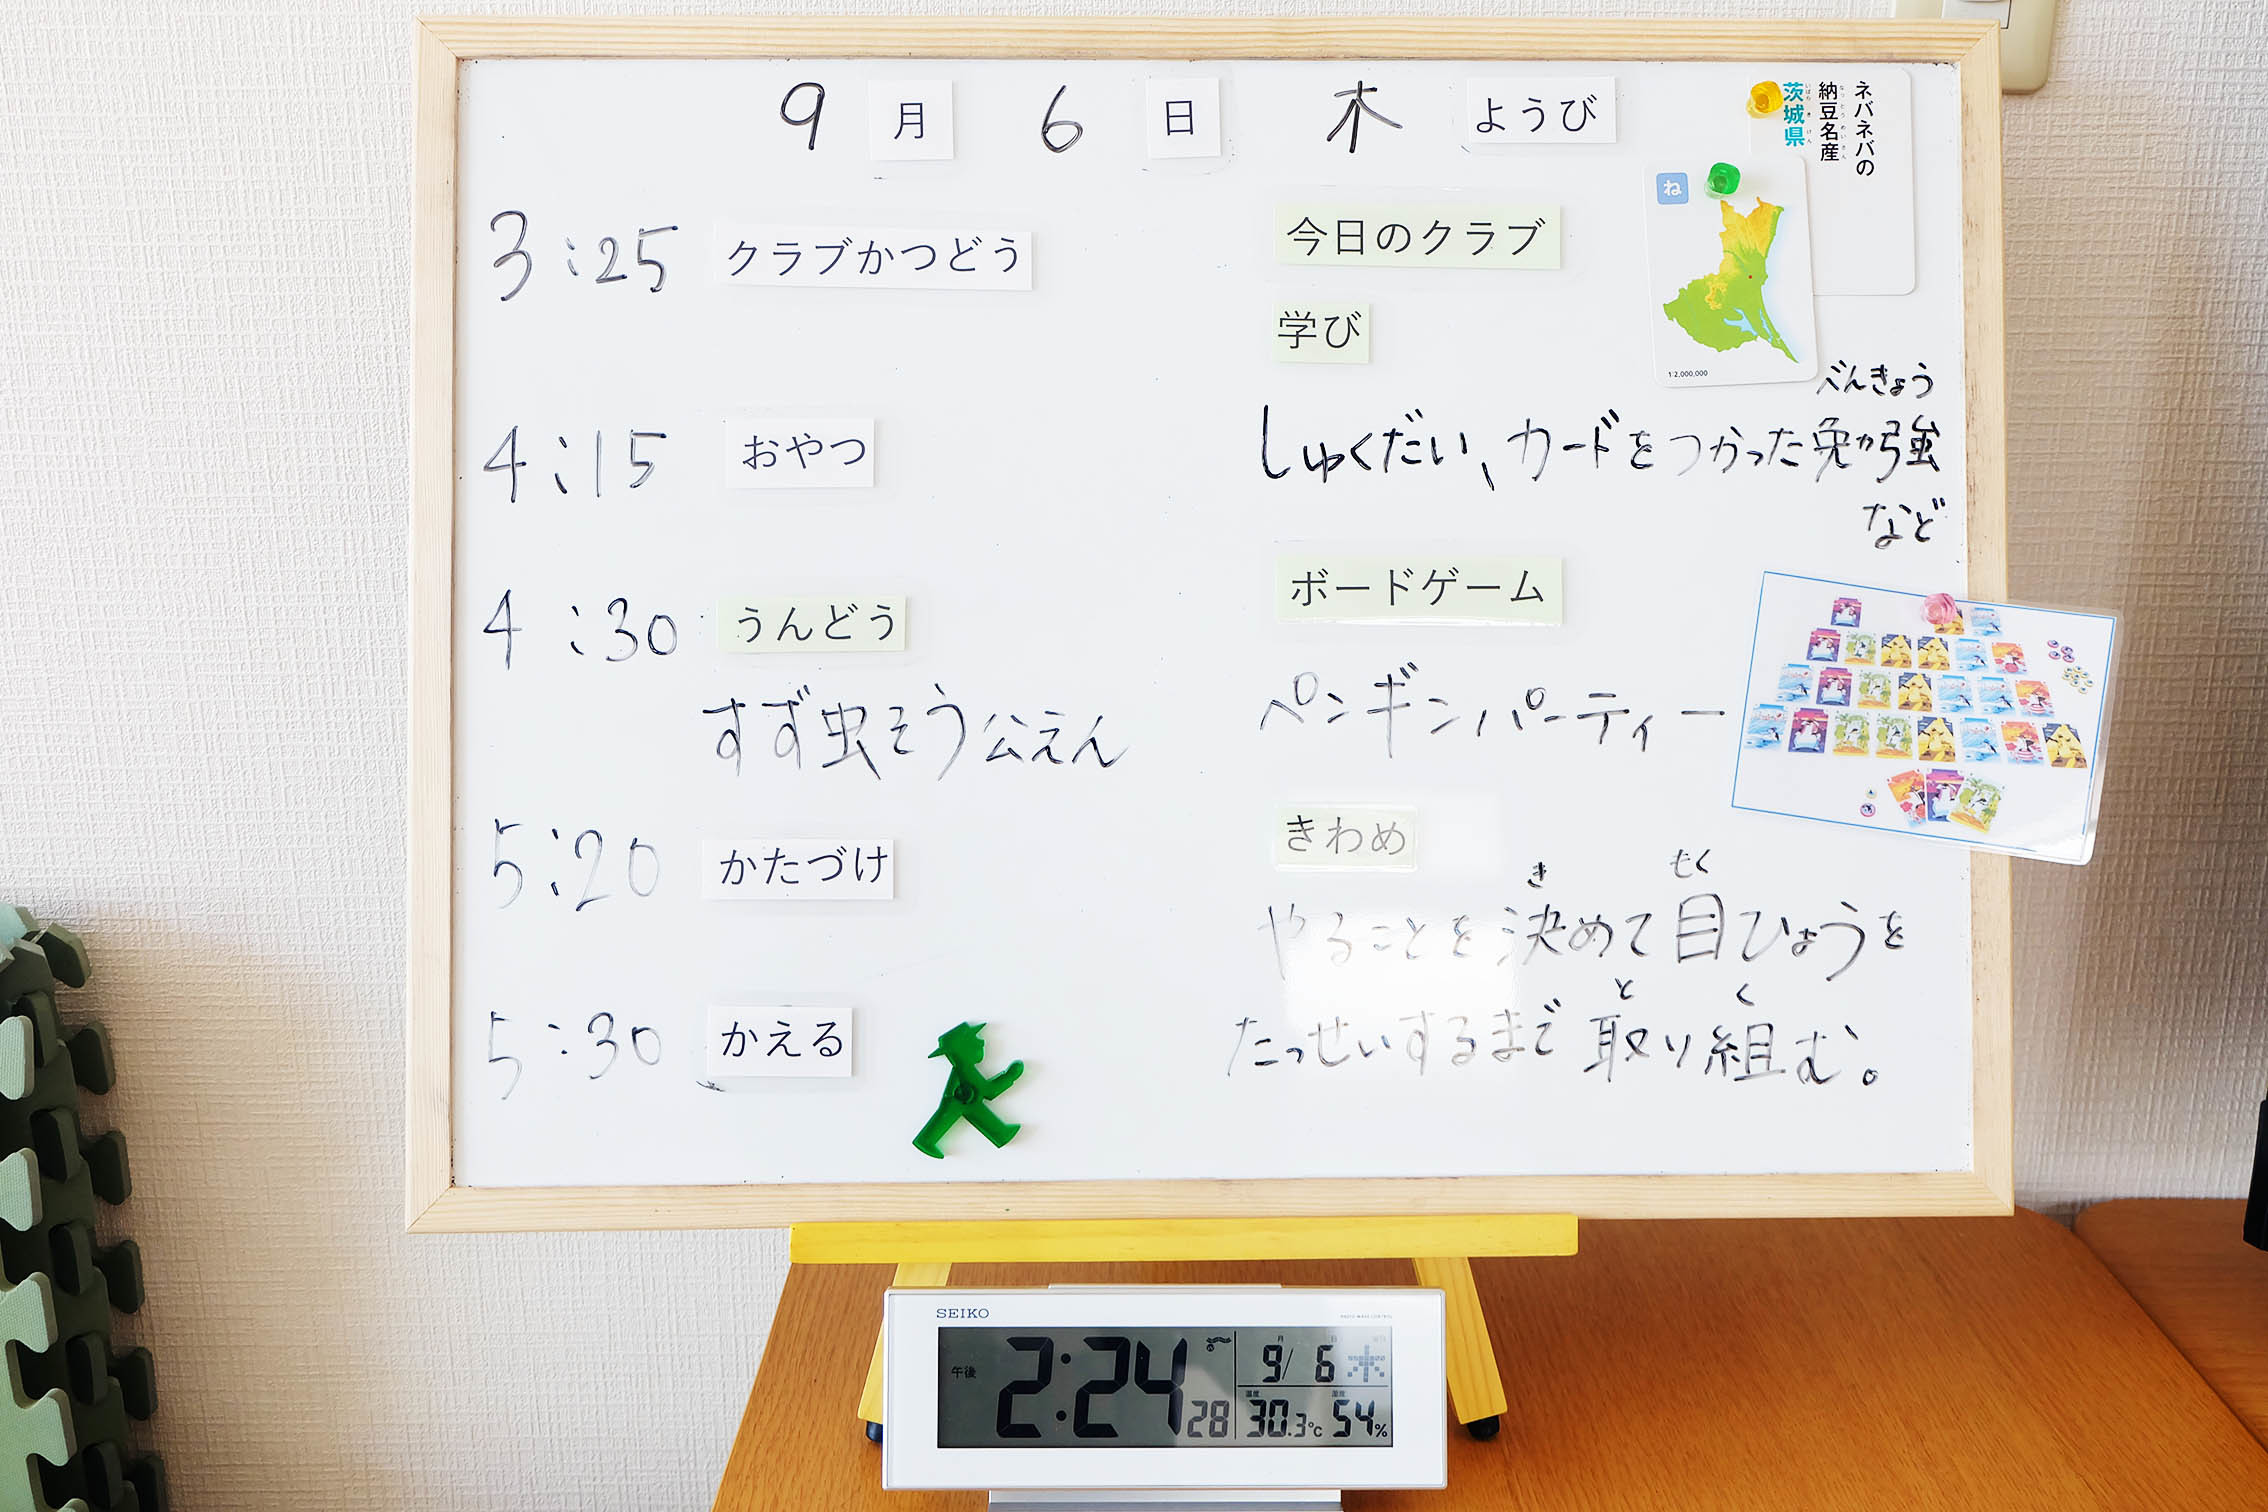 9月6日木ようび
3:25 クラブかつどう
4:15 おやつ
4:30 うんどう
すず虫そう公えん
5:20 かたづけ
5:30 かえる
今日のクラブ
学び
しゅくだい、カードをつかった勉強
べんきょう
など
ボードゲーム
ペンギンパーティー
きわめ
やることを決めて目ひょうを
き もく
たっせいするまで取り組む。
と く
ネバネバの
納豆名産
なっとうめいさん
茨城県
いばらきけん
ね
1:2,000,000
SEIKO
RADIO WAVE CONTROL
午後 2:24 28
月 日
9/6 木
温度 湿度
30.3℃ 54%